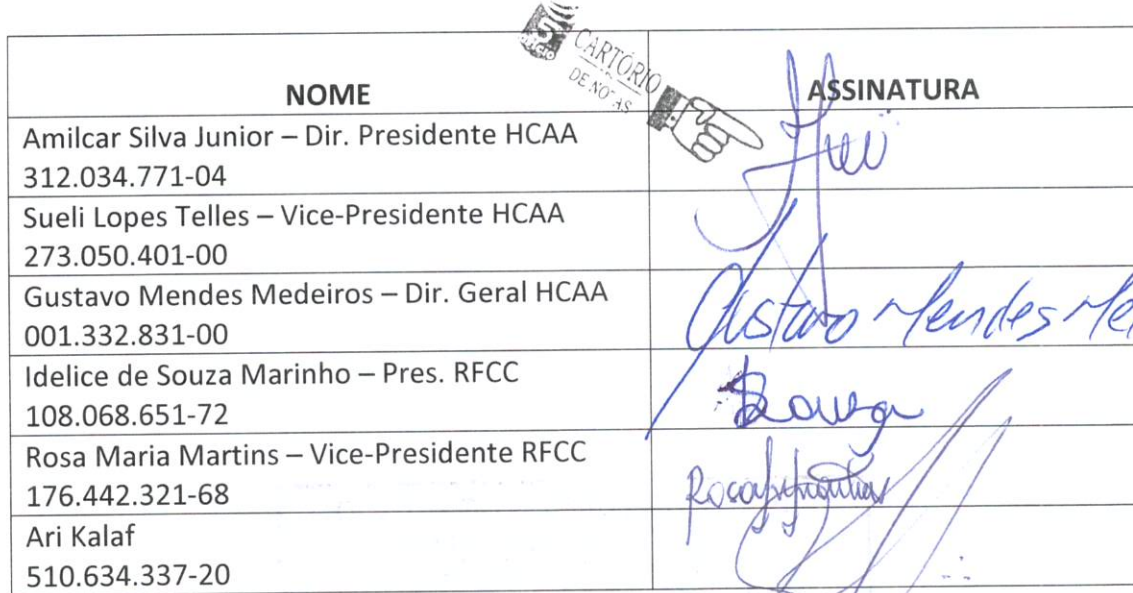 5
CARTÓRIO
DE NOTAS
NOME
ASSINATURA
Amilcar Silva Junior – Dir. Presidente HCAA
312.034.771-04
Sueli Lopes Telles – Vice-Presidente HCAA
273.050.401-00
Gustavo Mendes Medeiros – Dir. Geral HCAA
001.332.831-00
Gustavo Mendes Me
Idelice de Souza Marinho – Pres. RFCC
108.068.651-72
Souza
Rosa Maria Martins – Vice-Presidente RFCC
176.442.321-68
Ari Kalaf
510.634.337-20